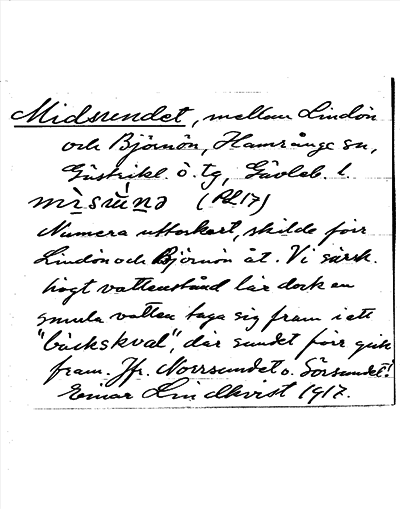 Midsundet, mellan Lindön
och Björnön, Hamrånge sn,
Gästrikl. ö. tg, Gävleb. l.
mìsúndə (Rl 17)
Numera uttorkat, skilde förr
Lindön och Björnön åt. Vi särsk.
högt vattenstånd lär dock en
smula vatten taga sig fram i ett
"bäckskval", där sundet förr gick
fram. Jfr. Norrsundet o. Sörsundet!
Einar Lindkvist 1917.